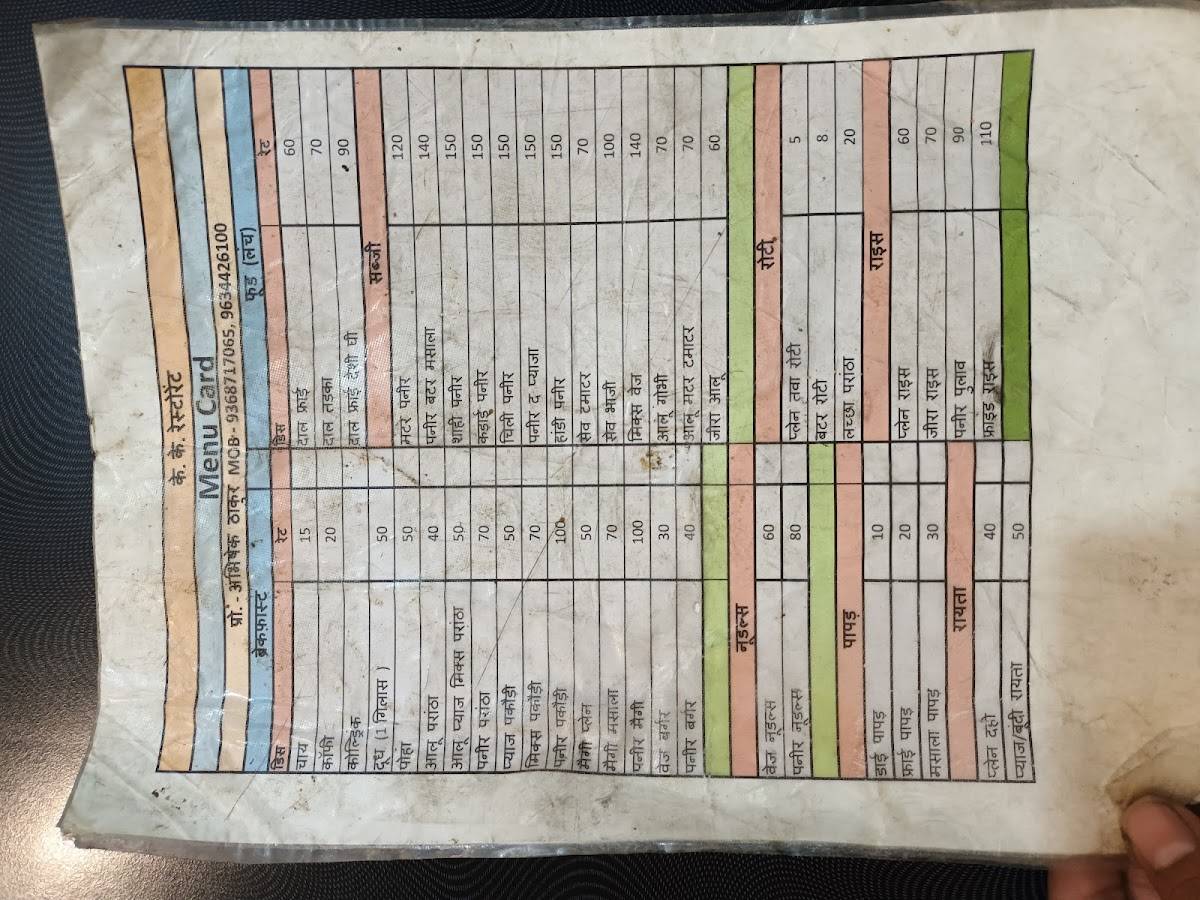 के. के. रेस्टोरेंट
Menu Card
प्रो.- अभिषेक ठाकुर MOB- 9368717065, 9634426100
ब्रेकफ़ास्ट
डिस रेट
चाय 15
कॉफी 20
कोल्ड्रिंक
दूध (1 गिलास ) 50
पोहा 50
आलू पराठा 40
आलू प्याज मिक्स परांठा 50
पनीर परांठा 70
प्याज पकौड़ी 50
मिक्स पकौड़ी 70
पनीर पकौड़ी 100
मैगी प्लेन 50
मैगी मसाला 70
पनीर मैगी 100
वेज बर्गर 30
पनीर बर्गर 40
नूडल्स
वेज नूडल्स 60
पनीर नूडल्स 80
पापड़
ड्राई पापड़ 10
फ्राई पापड़ 20
मसाला पापड़ 30
रायता
प्लेन दही 40
प्याज/बूंदी रायता 50
फूड (लंच)
डिस रेट
दाल फ्राई 60
दाल तड़का 70
दाल फ्राई देशी घी 90
सब्जी
मटर पनीर 120
पनीर बटर मसाला 140
शाही पनीर 150
कड़ाई पनीर 150
चिली पनीर 150
पनीर द प्याजा 150
हांडी पनीर 150
सेव टमाटर 70
सेव भाजी 100
मिक्स वेज 140
आलू गोभी 70
आलू मटर टमाटर 70
जीरा आलू 60
रोटी
प्लेन तवा रोटी 5
बटर रोटी 8
लच्छा परांठा 20
राइस
प्लेन राइस 60
जीरा राइस 70
पनीर पुलाव 90
फ्राइड राइस 110